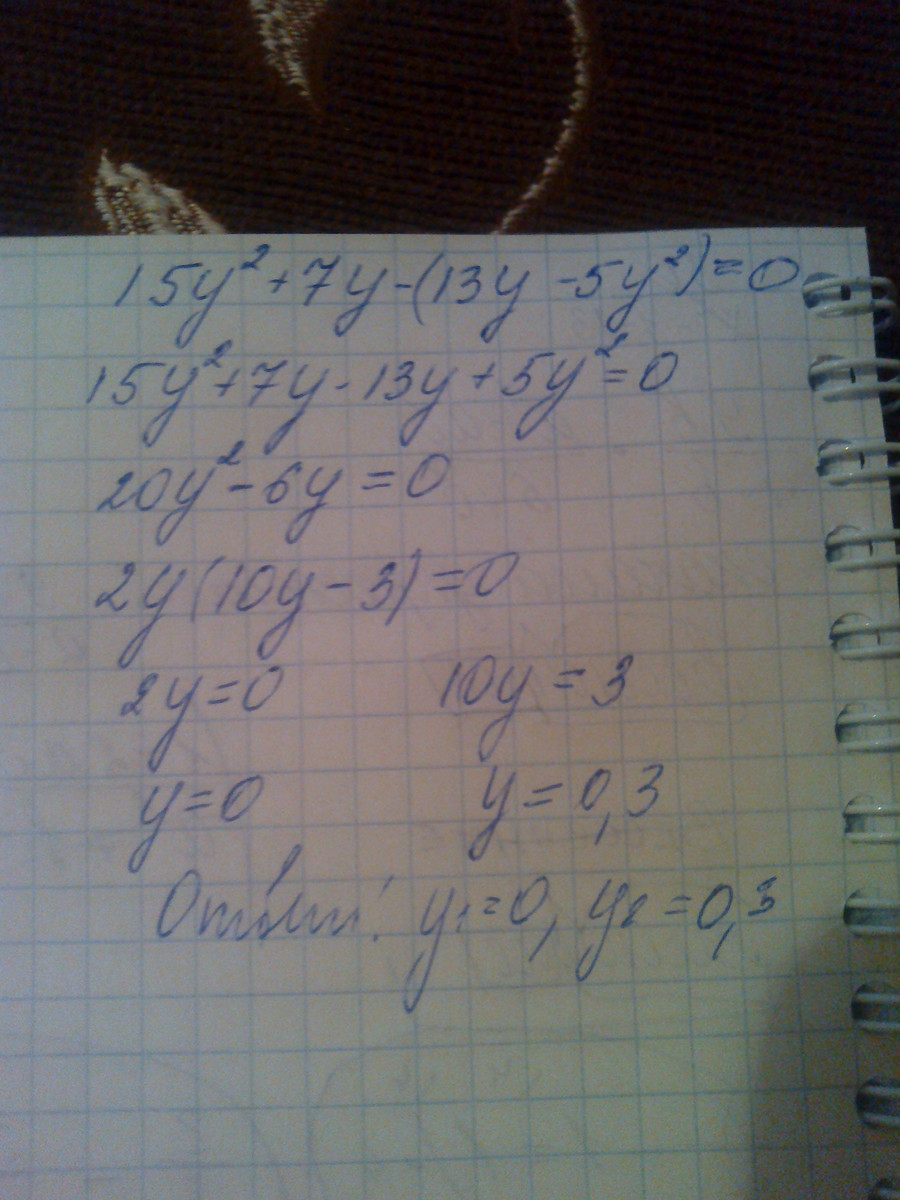 15y²+7y-(13y-5y²)=0
15y²+7y-13y+5y²=0
20y²-6y=0
2y(10y-3)=0
2y=0 10y=3
y=0 y=0,3
Ответ: y₁=0, y₂=0,3